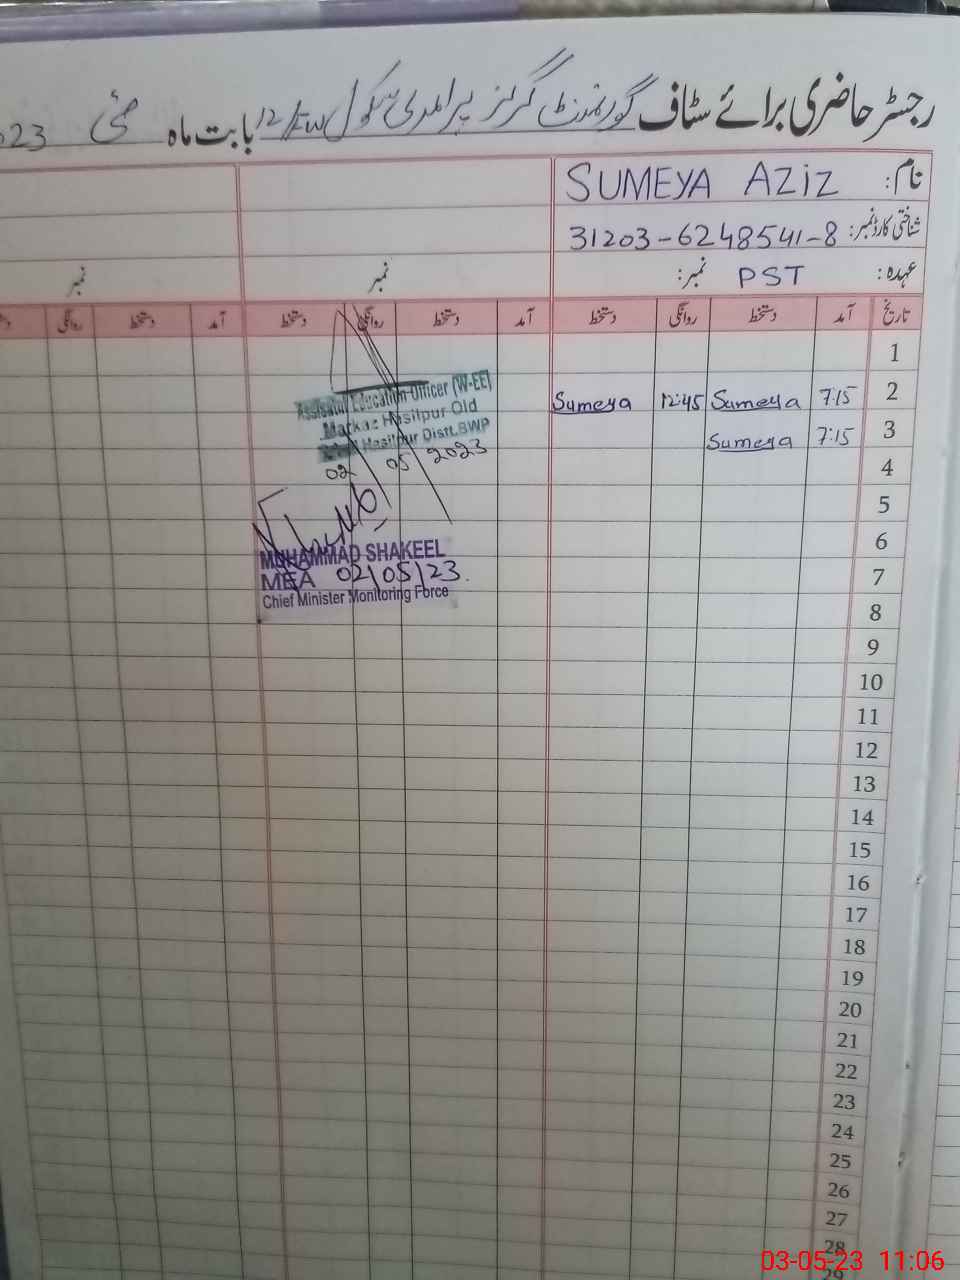 رجسٹر حاضری برائے سٹاف گورنمنٹ گرلز پرائمری سکول 12/FW بابت ماہ مئی 023
نام: SUMEYA AZIZ
شناختی کارڈ نمبر: 31203-6248541-8
عہدہ: PST نمبر: نمبر نمبر
تاریخ آمد دستخط روانگی دستخط آمد دستخط روانگی دستخط آمد دستخط روانگی
1
2 7:15 Sumeya 12:45 Sumeya
3 7:15 Sumeya
4
5
6
7
8
9
10
11
12
13
14
15
16
17
18
19
20
21
22
23
24
25
26
27
28
29
Assistant Education Officer (W-EE)
Markaz Hasilpur Old
Hasilpur Distt.BWP
02 05 2023
MUHAMMAD SHAKEEL
MEA 02/05/23.
Chief Minister Monitoring Force
03-05-23 11:06